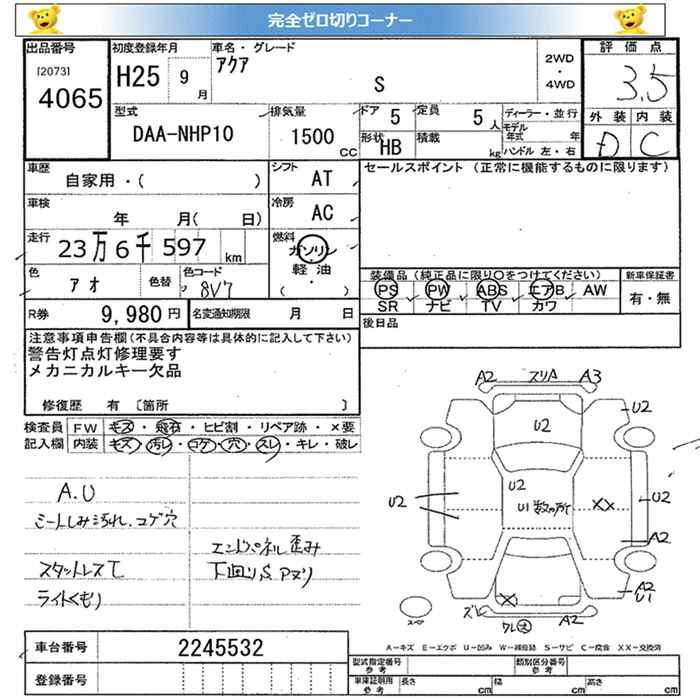 完全ゼロ切りコーナー
出品番号 初度登録年月 車名・グレード 評価点
[2073] アクア 2WD
4065 H25 9月 S ・ 4WD 3.5
型式 排気量 ドア 5 定員 5人 ディーラー・並行 外装 内装
DAA-NHP10 1500 CC モデル年式 年
形状 HB 積載 kg ハンドル 左・右 D C
車歴 シフト セールスポイント (正常に機能するものに限ります)
自家用・( ) AT
車検 冷房
年 月( 日) AC
走行 燃料
23万6千597 km ガソリン
軽油
( )
色 色替 色コード
アオ 8V7
装備品 (純正品に限り○をつけてください) 新車保証書
PS PW ABS エアB AW 有・無
SR ナビ TV カワ
R券 9,980円 名変通知期限 月 日
後日品
注意事項申告欄(不具合内容等は具体的に記入して下さい)
警告灯点灯修理要す
メカニカルキー欠品
修復歴 有 [箇所 ]
検査員 FW キズ・飛石・ヒビ割・リペア跡・×要
記入欄 内装 キズ・汚レ・コゲ・穴・スレ・キレ・破レ
A.U
シートしみ汚れ.コゲ穴
エンドパネル歪み
スタットレスて
下回りS アリ
ライトくもり
A2 スリA A3
U2
U2
U2
U2 U1数ヶ所 XX U2
A2
X
A2
U1
ズレ A2
スペア
ワレ大
A-キズ E-エクボ U-凹み W-補修跡 S-サビ C-腐食 XX-交換済
車台番号 2245532
登録番号
型式指定番号 参考 類別区分番号 参考
車庫証明用 参考 長さ cm 幅 cm 高さ cm